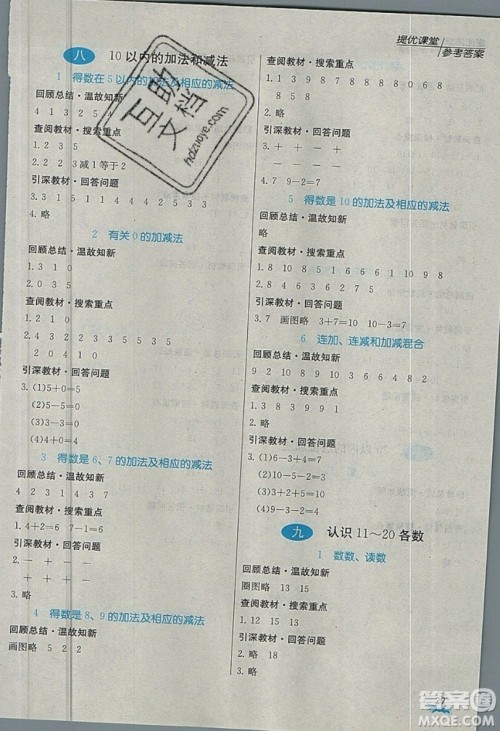 提优课堂
参考答案
八 10以内的加法和减法
1 得数在5以内的加法及相应的减法
回顾总结·温故知新
查阅教材·搜索重点
1. 2 3 5
2. 2 2 3减1等于2
引深教材·回答问题
3. 1 5 3 1 5 1 1 4 4 2 5 3 3
4. 略
2 有关0的加减法
回顾总结·温故知新
1. 3 1 0
2. 0 1 0
查阅教材·搜索重点
1. 0
2. 4 3 2 2 3 5 3 5 3 5
2 0 4 0
引深教材·回答问题
3. (1)5+0=5
(2)5-0=5
(3)5-5=0
(4)4-4=0
3 得数是6、7的加法及相应的减法
回顾总结·温故知新
4 2 3 1 4 3 7
查阅教材·搜索重点
1. 4+2=6 7-6=1
引深教材·回答问题
2. — + + —
+ — + —
4 得数是8、9的加法及相应的减法
回顾总结·温故知新
画图略 5 2 2
查阅教材·搜索重点
1. 1 3 9 8 7 8 8 8 8 0 8 9
8 5 8
2. 略
引深教材·回答问题
3. + — + —
— + — +
4. 7 9-2=7
5 得数是10的加法及相应的减法
回顾总结·温故知新
略
查阅教材·搜索重点
1. 8 10 9 10 8 6 8 1 0 6 0 6 8
2. 8 4 6 3 6 2 7 5
引深教材·回答问题
3. 7 画图略 3+7=10 10-3=7
6 连加、连减和加减混合
回顾总结·温故知新
1 8 2 3 9 4 2 9 8
查阅教材·搜索重点
1. 3 2
引深教材·回答问题
2. (1)6-3+4=7
(2)10-3-6=1
(3)9-6+3=6
(4)2+3+4=9
九 认识11～20各数
1 数数、读数
回顾总结·温故知新
圈图略 13 15
查阅教材·搜索重点
1. 12 15 13
2. 略
引深教材·回答问题
3. 略 18
百旺文档
hdzuoye.com
答案圈
MXQE.COM